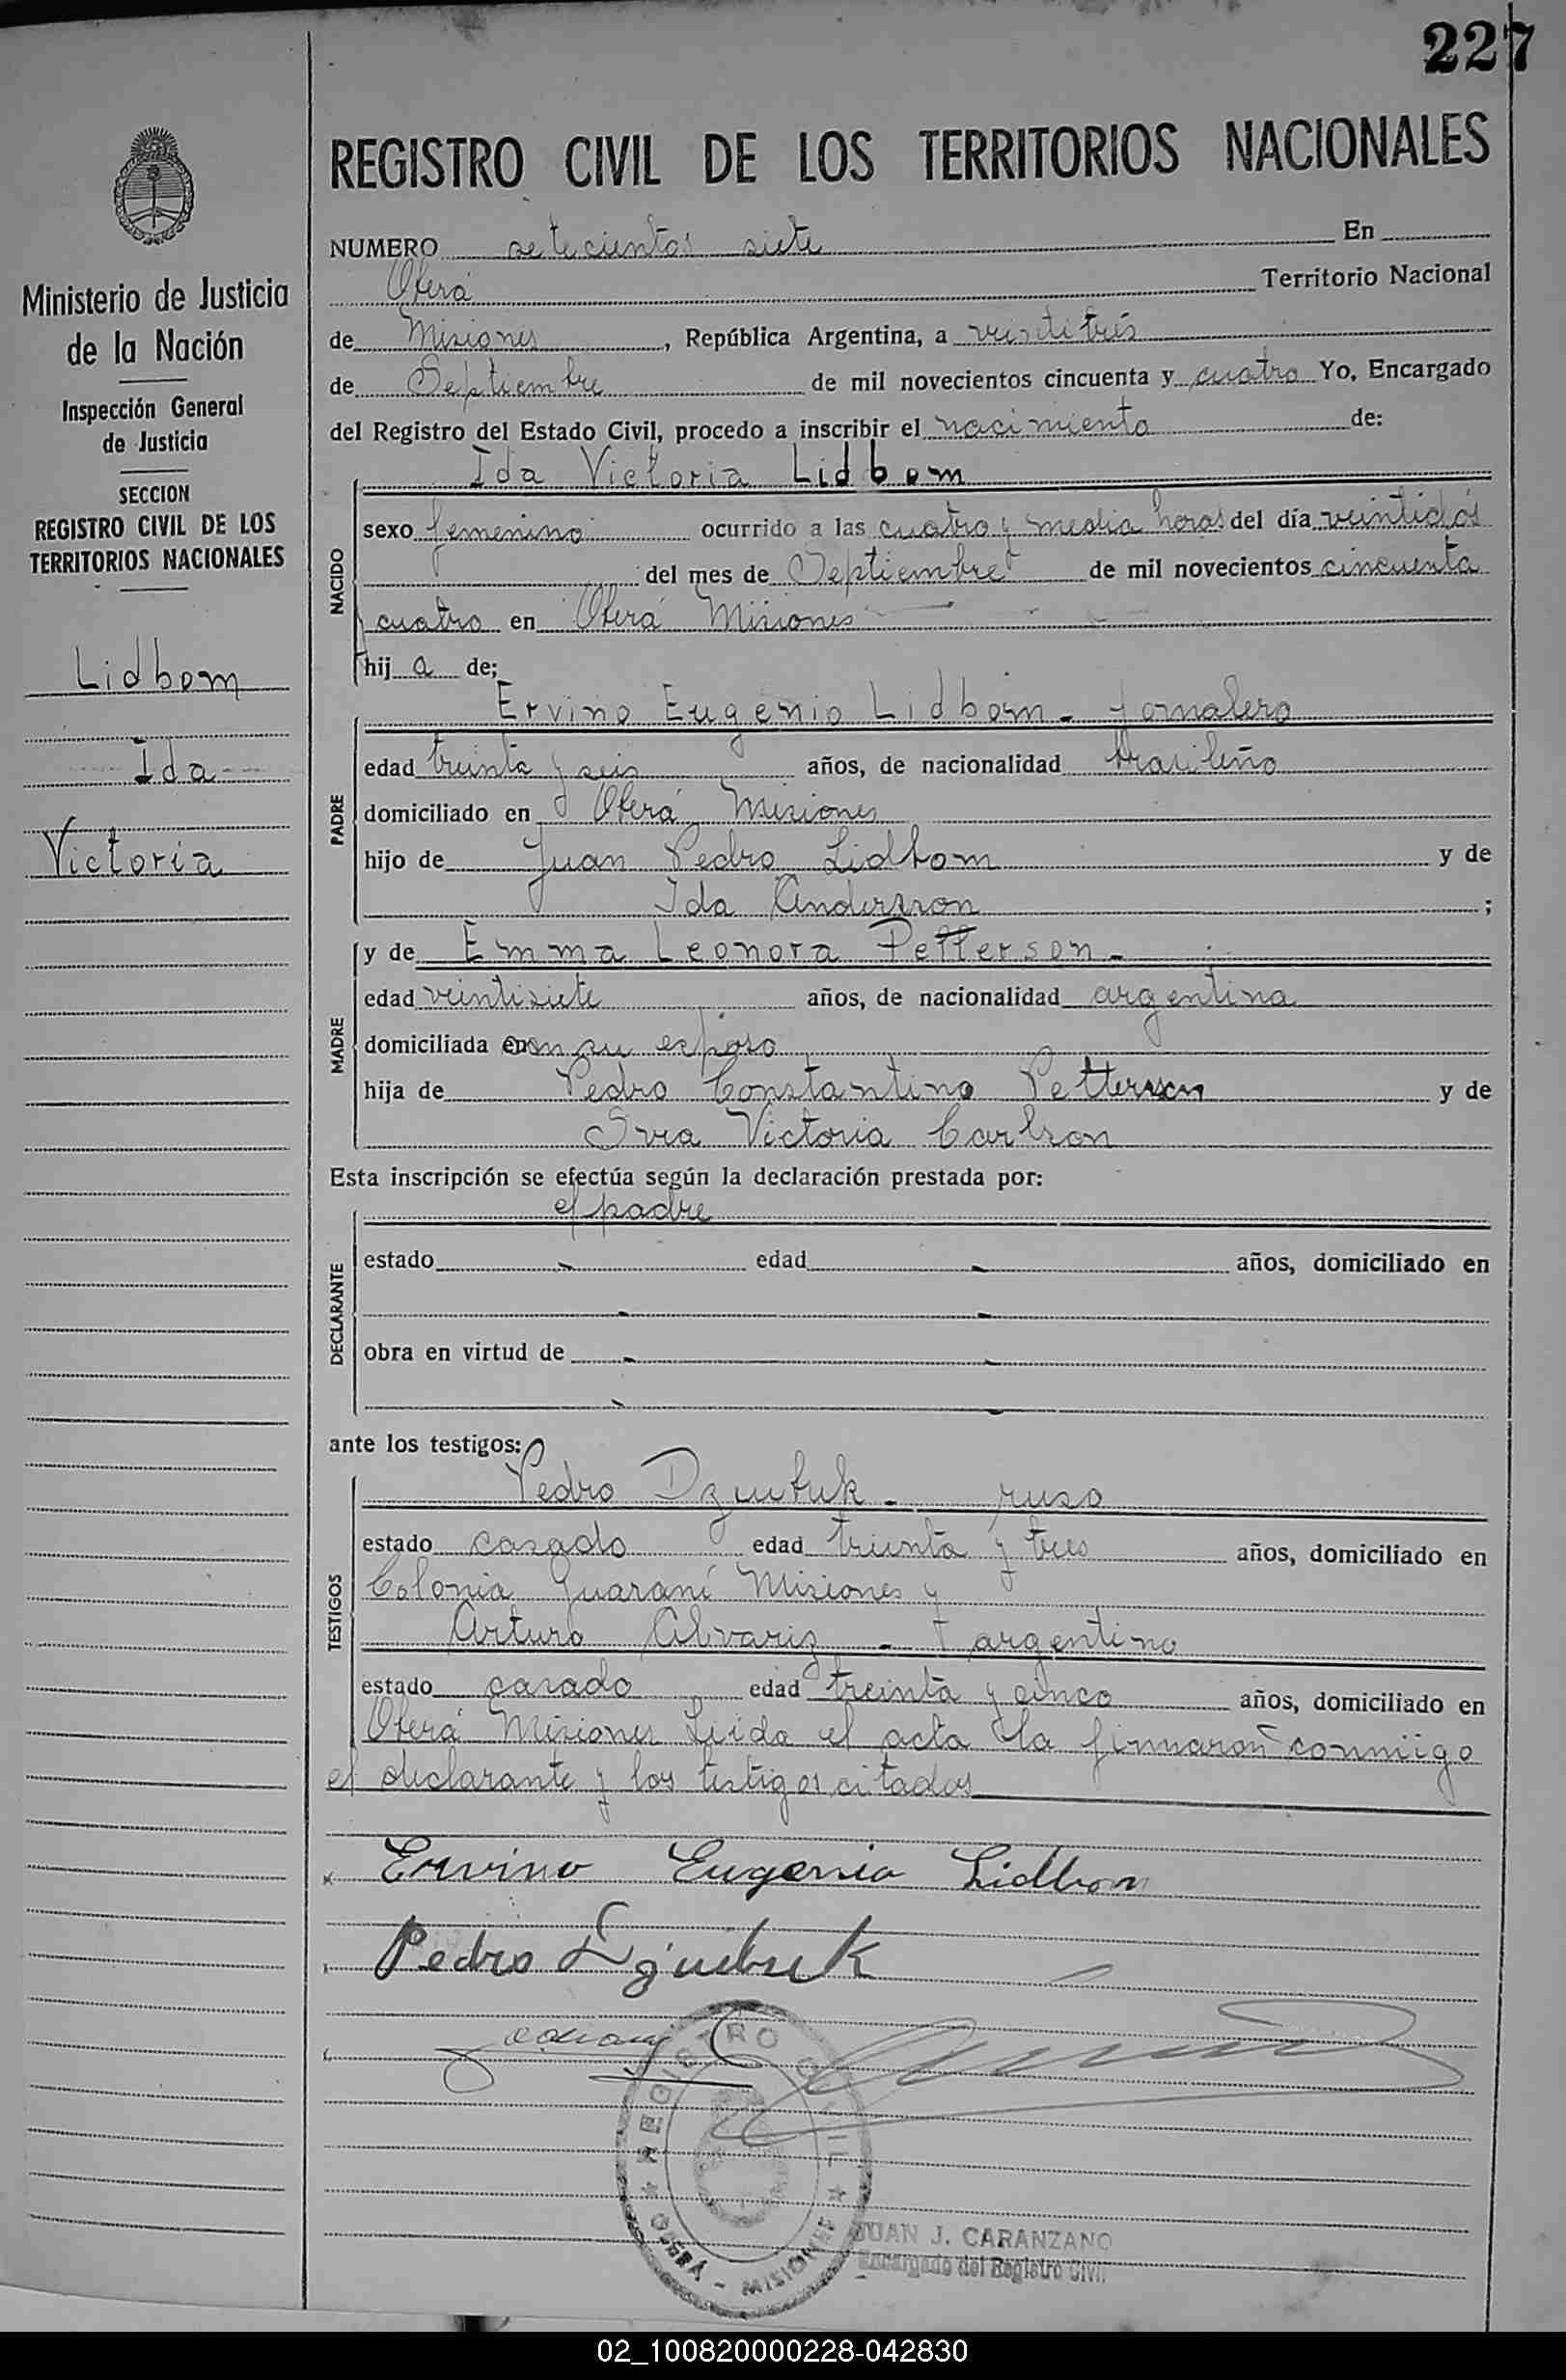 227
REGISTRO CIVIL DE LOS TERRITORIOS NACIONALES
Ministerio de Justicia
de la Nación
Inspección General
de Justicia
SECCION
REGISTRO CIVIL DE LOS
TERRITORIOS NACIONALES
Lidbom
Ida
Victoria
NUMERO setecientos siete En
Oberá Territorio Nacional
de Misiones, República Argentina, a veintitrés
de Septiembre de mil novecientos cincuenta y cuatro Yo, Encargado
del Registro del Estado Civil, procedo a inscribir el nacimiento de:
NACIDO
Ida Victoria Lidbom
sexo femenino ocurrido a las cuatro y media horas del día veintidós
del mes de Septiembre de mil novecientos cincuenta
y cuatro en Oberá Misiones
hija de;
PADRE
Ervino Eugenio Lidbom - jornalero
edad treinta y seis años, de nacionalidad brasileño
domiciliado en Oberá Misiones
hijo de Juan Pedro Lidbom y de
Ida Andersson;
MADRE
y de Emma Leonora Petterson -
edad veintisiete años, de nacionalidad argentina
domiciliada en con su esposo
hija de Pedro Constantino Petterson y de
Svea Victoria Carlson
Esta inscripción se efectúa según la declaración prestada por:
DECLARANTE
el padre
estado - edad - años, domiciliado en
- -
obra en virtud de - -
- -
ante los testigos:
TESTIGOS
Pedro Dziubuk - ruso
estado casado edad treinta y tres años, domiciliado en
Colonia Guaraní Misiones y
Arturo Alvariz - argentino
estado casado edad treinta y cinco años, domiciliado en
Oberá Misiones Leida el acta la firmaron conmigo
el declarante y los testigos citados
Ervino Eugenio Lidbom
Pedro Dziubuk
REGISTRO CIVIL
OBERÁ - MISIONES
JUAN J. CARANZANO
Encargado del Registro Civil
02_100820000228-042830